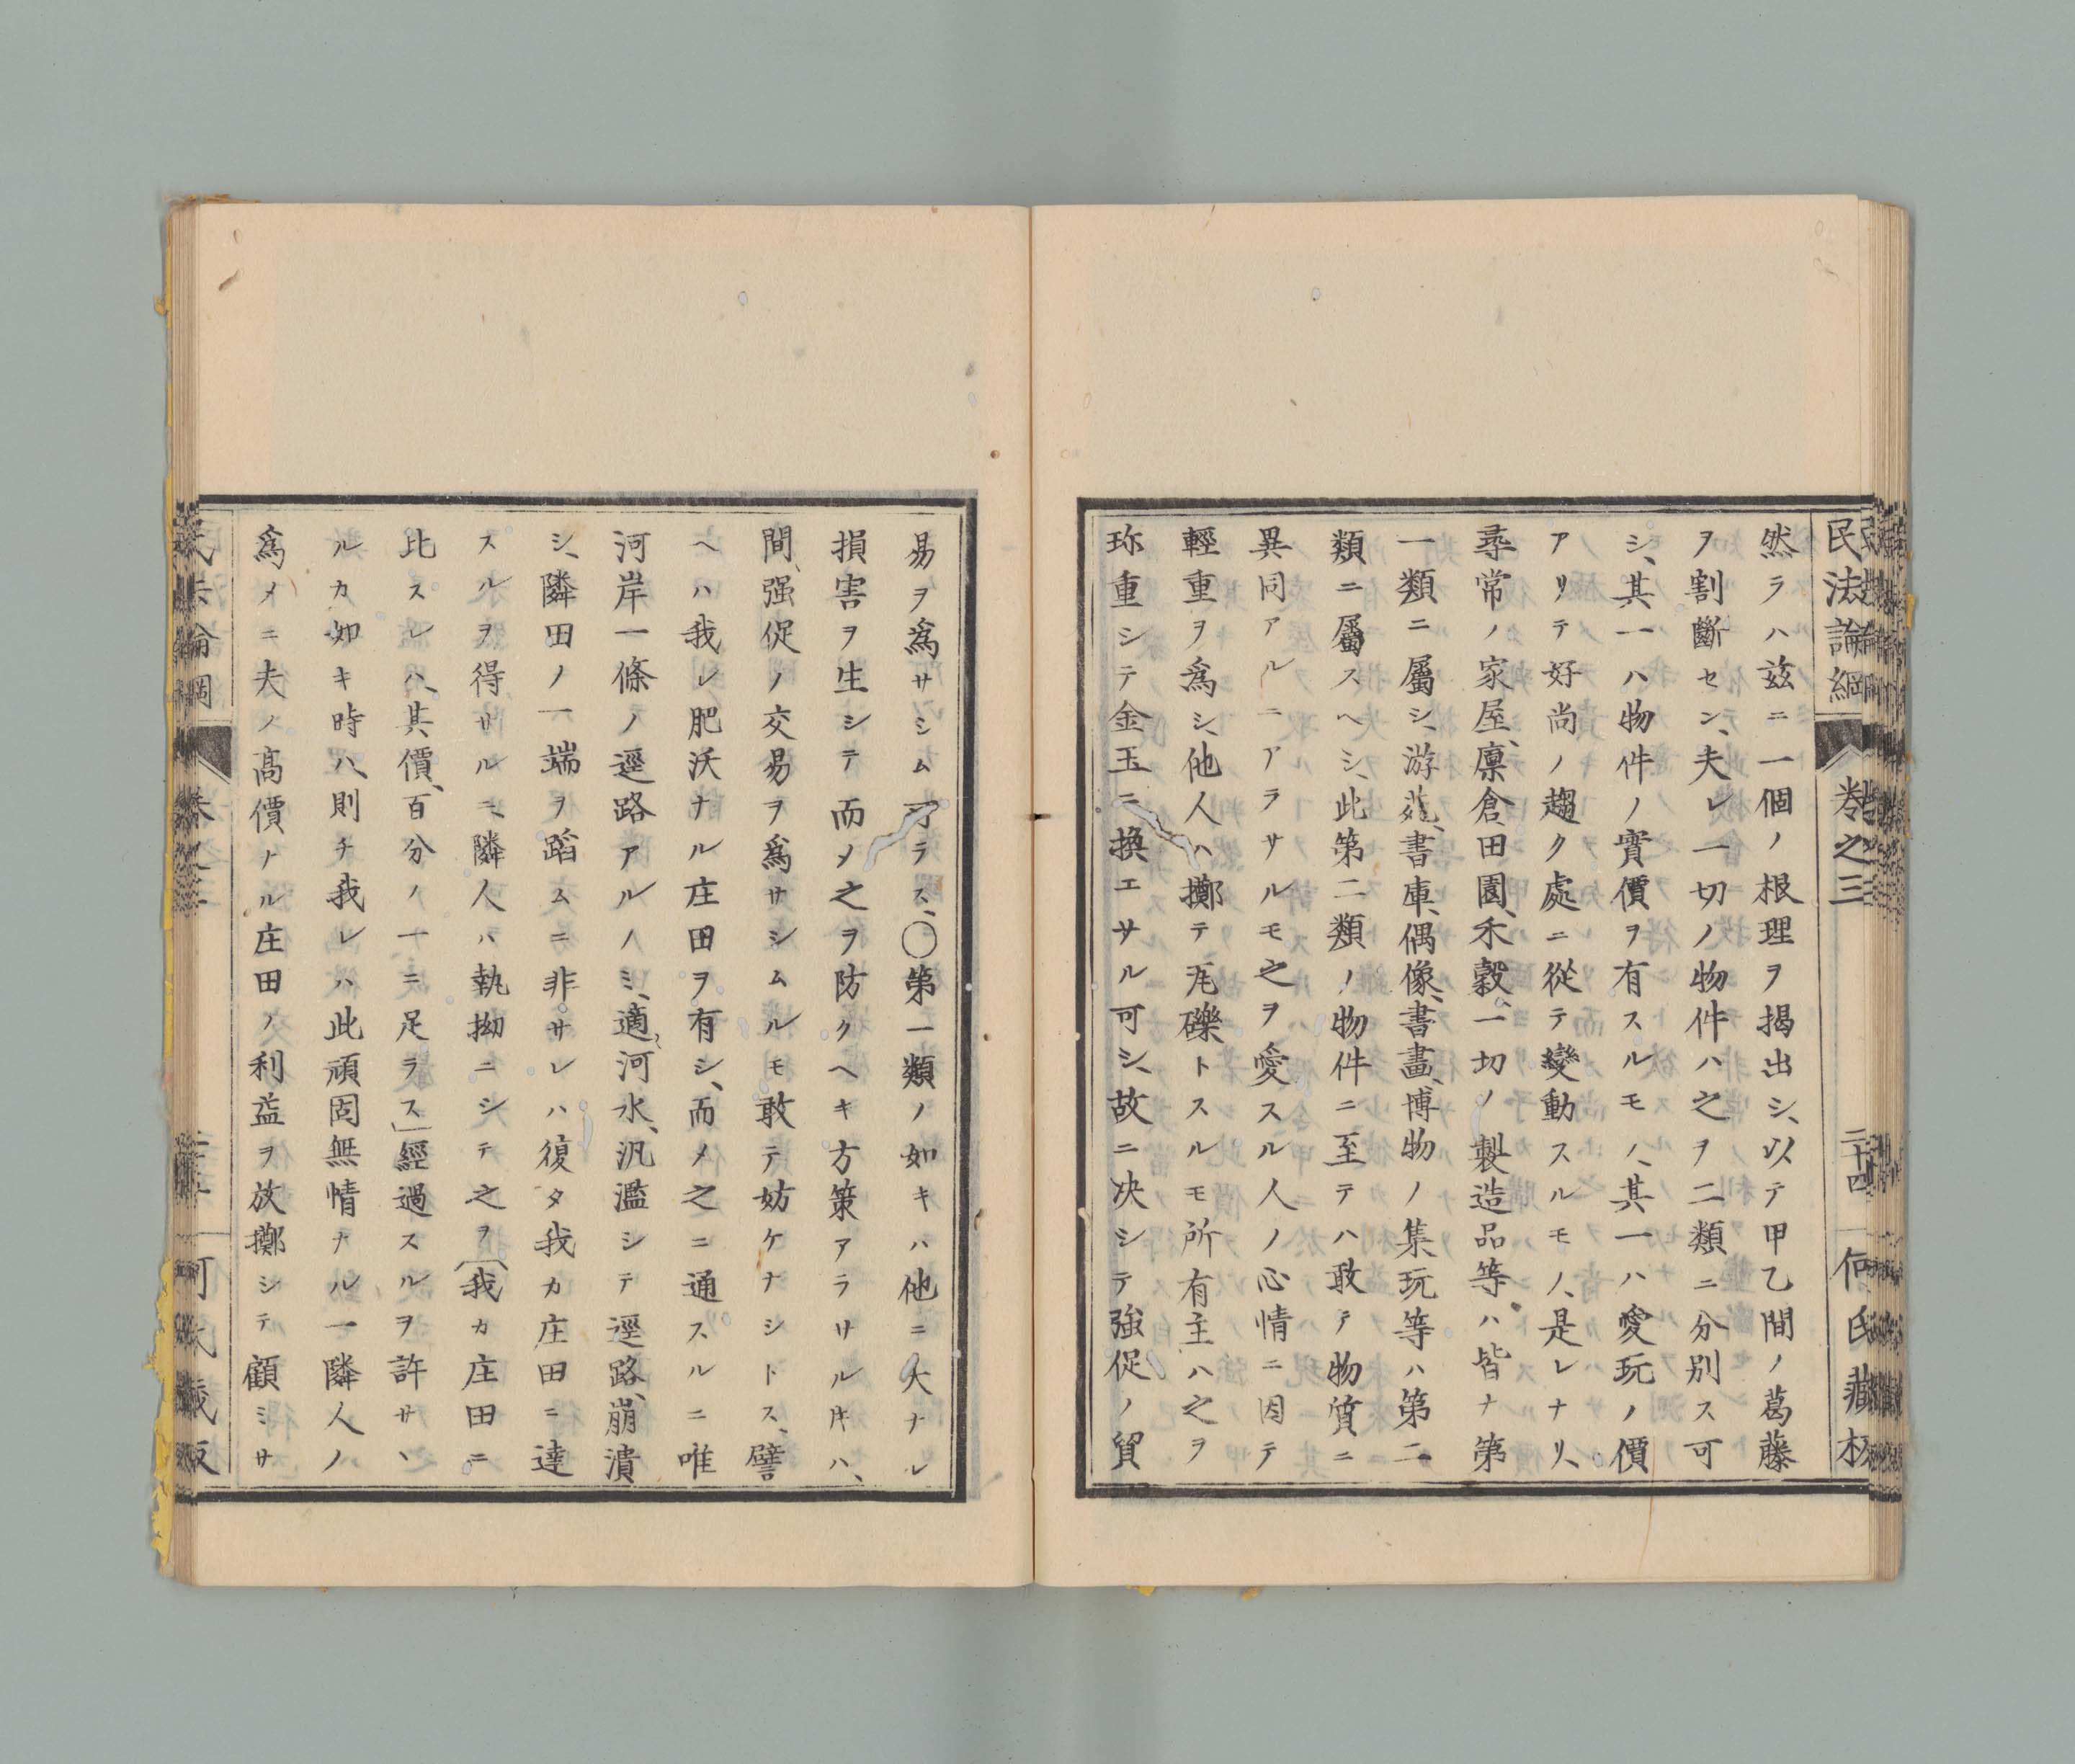 民法論綱 卷之三 二十四 何氏藏板
然ラハ茲ニ一個ノ根理ヲ揭出シ、以テ甲乙間ノ葛藤
ヲ割斷セン、夫レ一切ノ物件ハ之ヲ二類ニ分別ス可
シ、其一ハ物件ノ實價ヲ有スルモノ、其一ハ愛玩ノ價
アリテ好尚ノ趨ク處ニ從テ變動スルモノ、是レナリ、
尋常ノ家屋、廩倉、田園、禾穀、一切ノ製造品等ハ皆ナ第
一類ニ屬シ、游苑、書庫、偶像、書畫、博物ノ集玩等ハ第二
類ニ屬スヘシ、此第二類ノ物件ニ至テハ敢テ物質ニ
異同アルニアラサルモ之ヲ愛スル人ノ心情ニ因テ
輕重ヲ爲シ、他人ハ擲テ瓦礫トスルモ所有主ハ之ヲ
珎重シテ金玉ニ換エサル可シ、故ニ决シテ強促ノ貿
易ヲ爲サシム可ラス、○第一類ノ如キハ他ニ大ナル
損害ヲ生シテ而メ之ヲ防クヘキ方策アラサル片ハ、
間、强促ノ交易ヲ爲サシムルモ敢テ妨ケナシトス、譬
ヘハ我レ肥沃ナル庄田ヲ有シ、而メ之ニ通スルニ唯
河岸一條ノ逕路アルノミ、適、河水、汎濫シテ逕路、崩潰
シ、隣田ノ一端ヲ蹈ムニ非サレハ復タ我カ庄田ニ達
スルヲ得サルニ、隣人ハ執拗ニシテ之ヲ「我カ庄田ニ
比スレハ、其價、百分ノ一ニ足ラス」經過スルヲ許サヽ
ルカ如キ時ハ、則チ我レハ此頑固無情ナル一隣人ノ
爲メニ夫ノ高價ナル庄田ノ利益ヲ放擲シテ顧ミサ